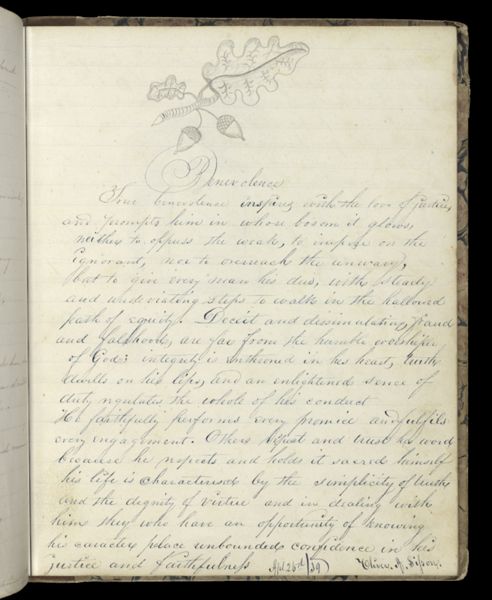 Benevolence
True benevolence inspires with the love of justice,
and prompts him in whose bosom it glows,
neither to oppress the weak, to impose on the
ignorant, nor to overreach the unwary,
but to give every man his due, with steady
and undeviating steps to walk in the hallowed
path of equity. Deceit and dissimulating, fraud
and falshood, are far from the humble worshiper
of God; integrity is enthroned in his heart, truth
dwells on his lips, and an enlightened sence of
duty regulates the whole of his conduct
He faithfully performs every promice and fulfils
every engagement. Others trust his word
because he respects and holds it sacred himself
his life is characterised by the simplicity of truth
and the dignity of virtue and in dealing with
him they who have an opportunity of knowing
his caracter place unbounded confidence in his
justice and faithfulness Apl 26th/39